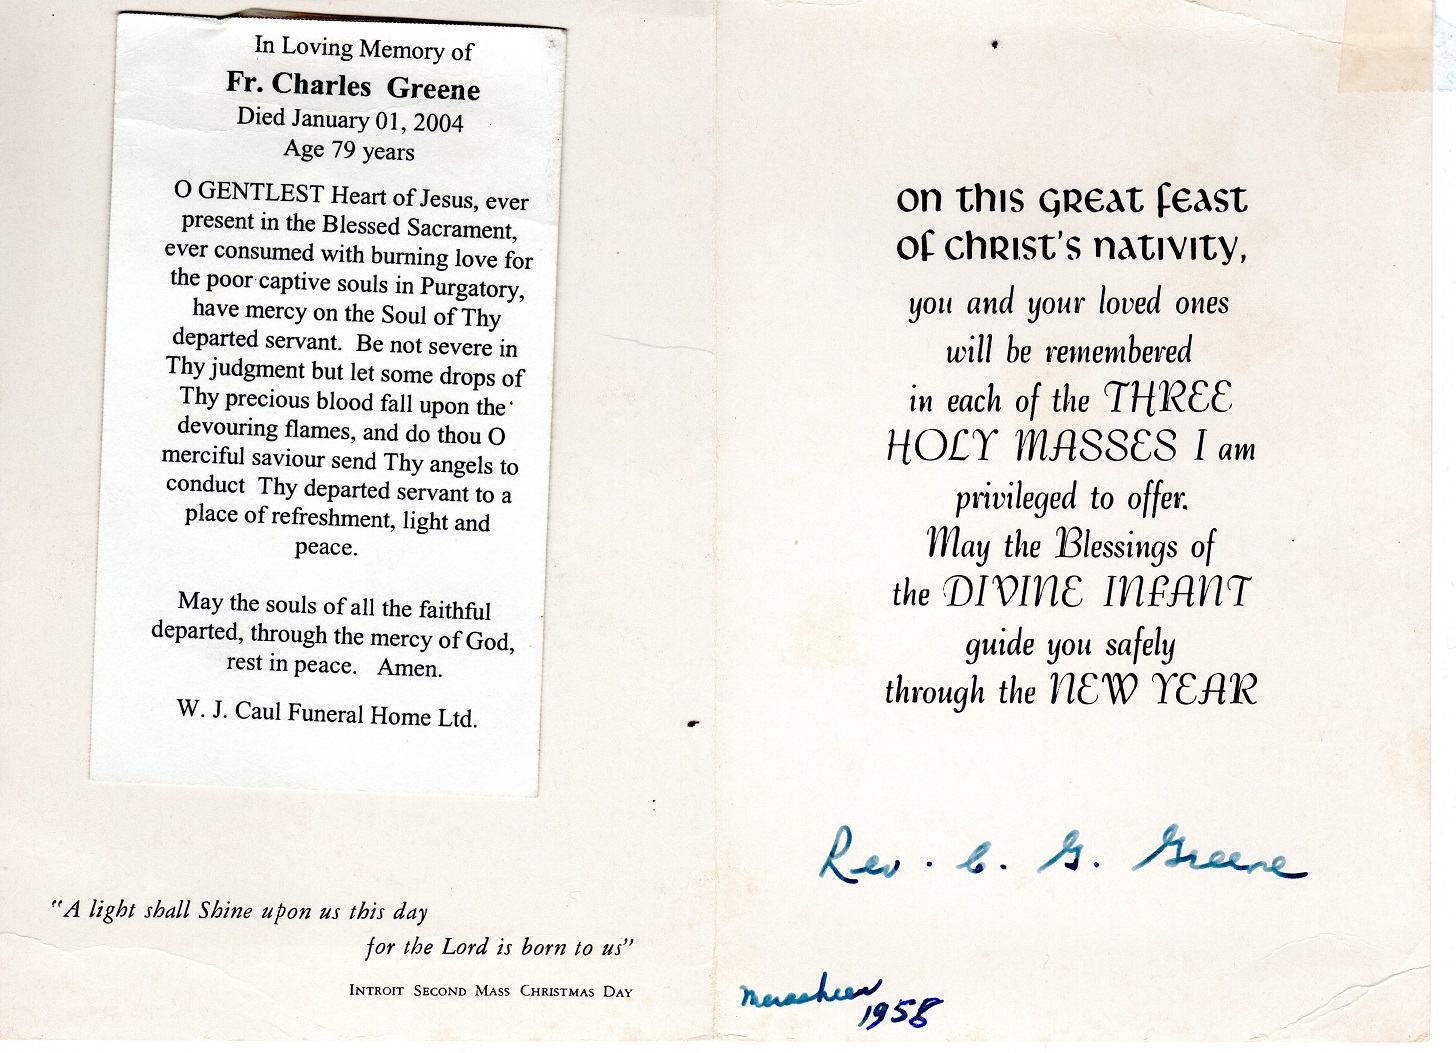 In Loving Memory of
Fr. Charles Greene
Died January 01, 2004
Age 79 years
O GENTLEST Heart of Jesus, ever
present in the Blessed Sacrament,
ever consumed with burning love for
the poor captive souls in Purgatory,
have mercy on the Soul of Thy
departed servant. Be not severe in
Thy judgment but let some drops of
Thy precious blood fall upon the
devouring flames, and do thou O
merciful saviour send Thy angels to
conduct Thy departed servant to a
place of refreshment, light and
peace.
May the souls of all the faithful
departed, through the mercy of God,
rest in peace. Amen.
W. J. Caul Funeral Home Ltd.
"A light shall Shine upon us this day
for the Lord is born to us"
INTROIT SECOND MASS CHRISTMAS DAY
on this GREAT feast
of CHRIST'S nativity,
you and your loved ones
will be remembered
in each of the THREE
HOLY MASSES I am
privileged to offer.
May the Blessings of
the DIVINE INFANT
guide you safely
through the NEW YEAR
Rev. C. G. Greene
Merasheen
1958